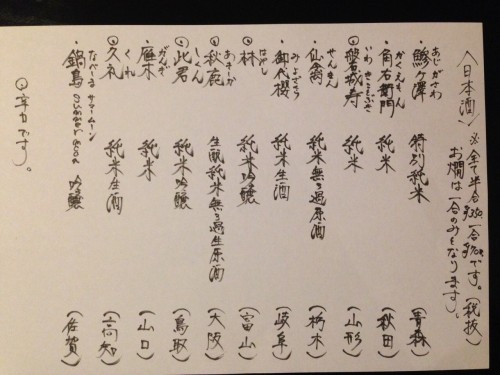 〈日本酒〉 ※全て半合¥350 一合¥700です。(税抜)
お燗は一合のみとなります。
あじがさわ
・鰺ヶ澤 特別純米 (青森)
かくえもん
・角右衛門 純米 (秋田)
いわきことぶき
⦿磐城寿 純米 (山形)
せんきん
・仙禽 純米無ろ過原酒 (栃木)
みよざくら
・御代櫻 純米生酒 (岐阜)
はやし
⦿林 純米吟醸 (富山)
あきしか
⦿秋鹿 生酛純米無ろ過生原酒 (大阪)
しくん
⦿此君 純米吟醸 (鳥取)
がんぎ
・雁木 純米 (山口)
くれ
⦿久礼 純米生酒 (高知)
なべしま サマームーン
・鍋島 Summer Moon 吟醸 (佐賀)
⦿辛口です。